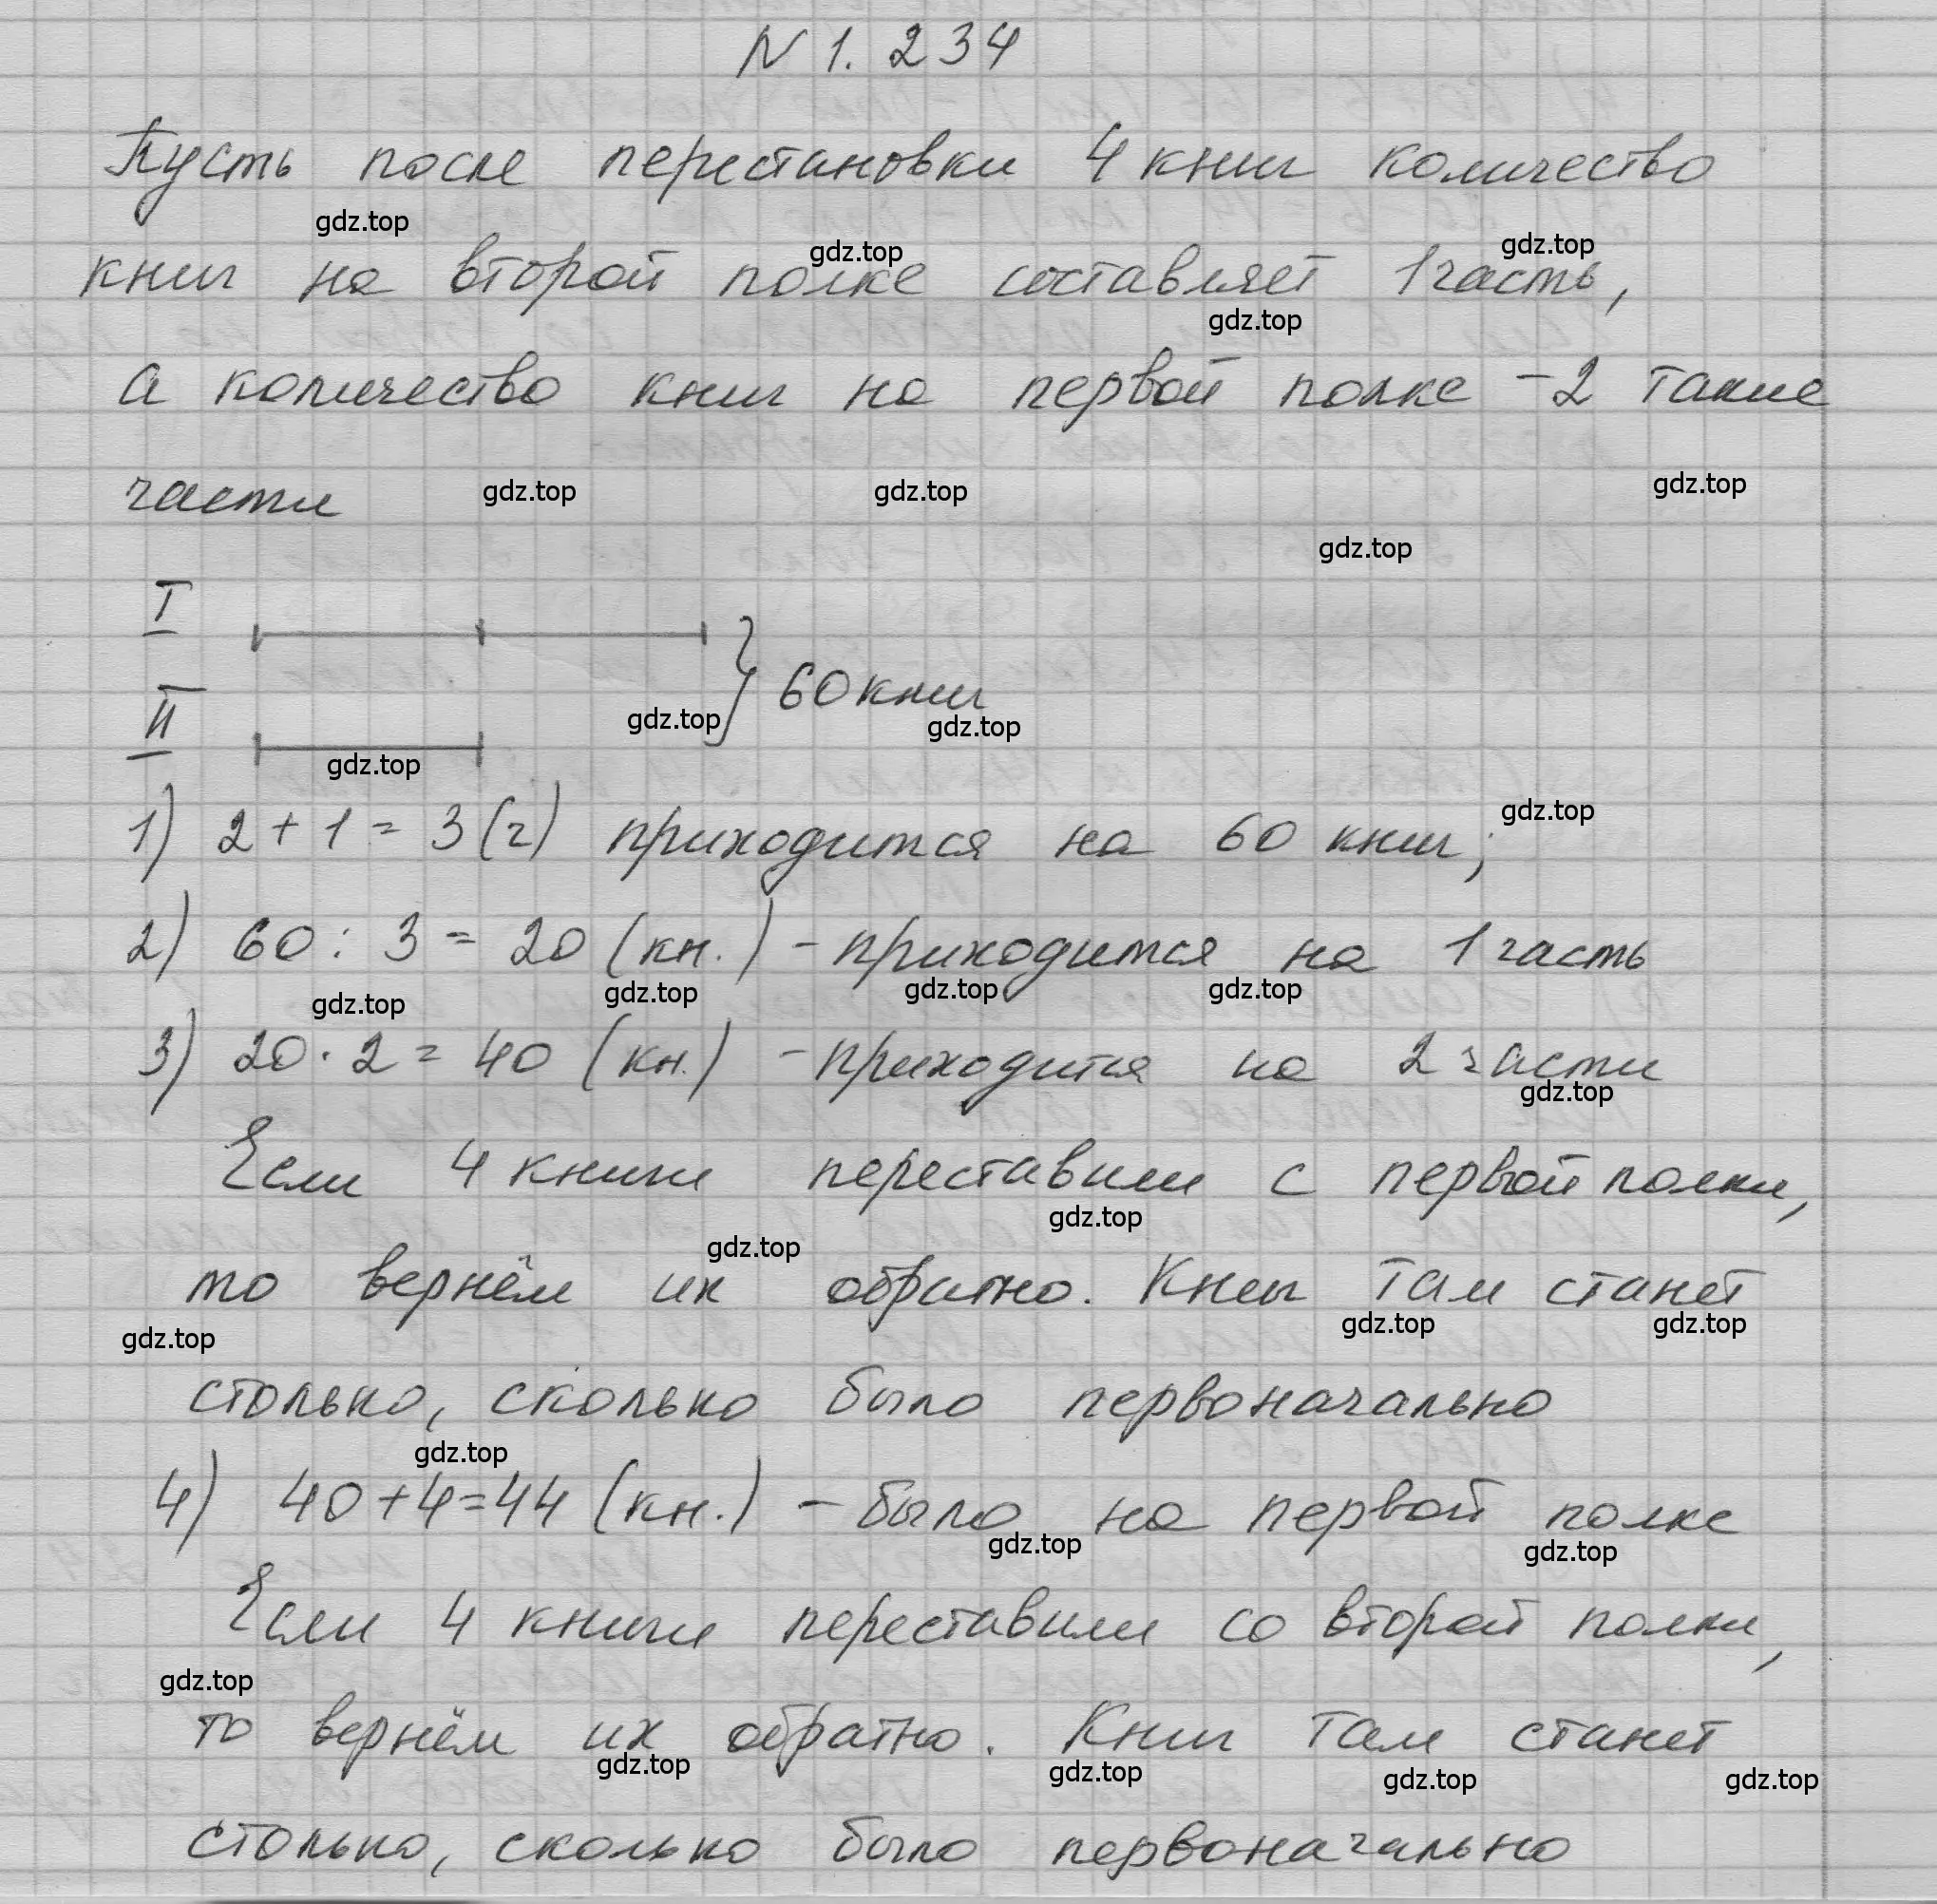 N 1. 234
Пусть после перестановки 4 книг количество
gdz.top gdz.top gdz.top
книг на второй полке составляет 1 часть,
gdz.top
а количество книг на первой полке – 2 такие
части gdz.top gdz.top gdz.top
gdz.top
I
} 60 книг
II gdz.top gdz.top
gdz.top
1) 2 + 1 = 3 (ч) приходится на 60 книг; gdz.top
2) 60 : 3 = 20 (кн.) – приходится на 1 часть
gdz.top gdz.top gdz.top gdz.top
3) 20 · 2 = 40 (кн.) – приходится на 2 части
gdz.top
Если 4 книги переставили с первой полки,
gdz.top gdz.top
то вернём их обратно. Книг там станет
gdz.top gdz.top gdz.top
столько, сколько было первоначально
gdz.top
4) 40 + 4 = 44 (кн.) – было на первой полке
gdz.top gdz.top
Если 4 книги переставили со второй полки,
gdz.top
то вернём их обратно. Книг там станет
gdz.top gdz.top gdz.top gdz.top
столько, сколько было первоначально